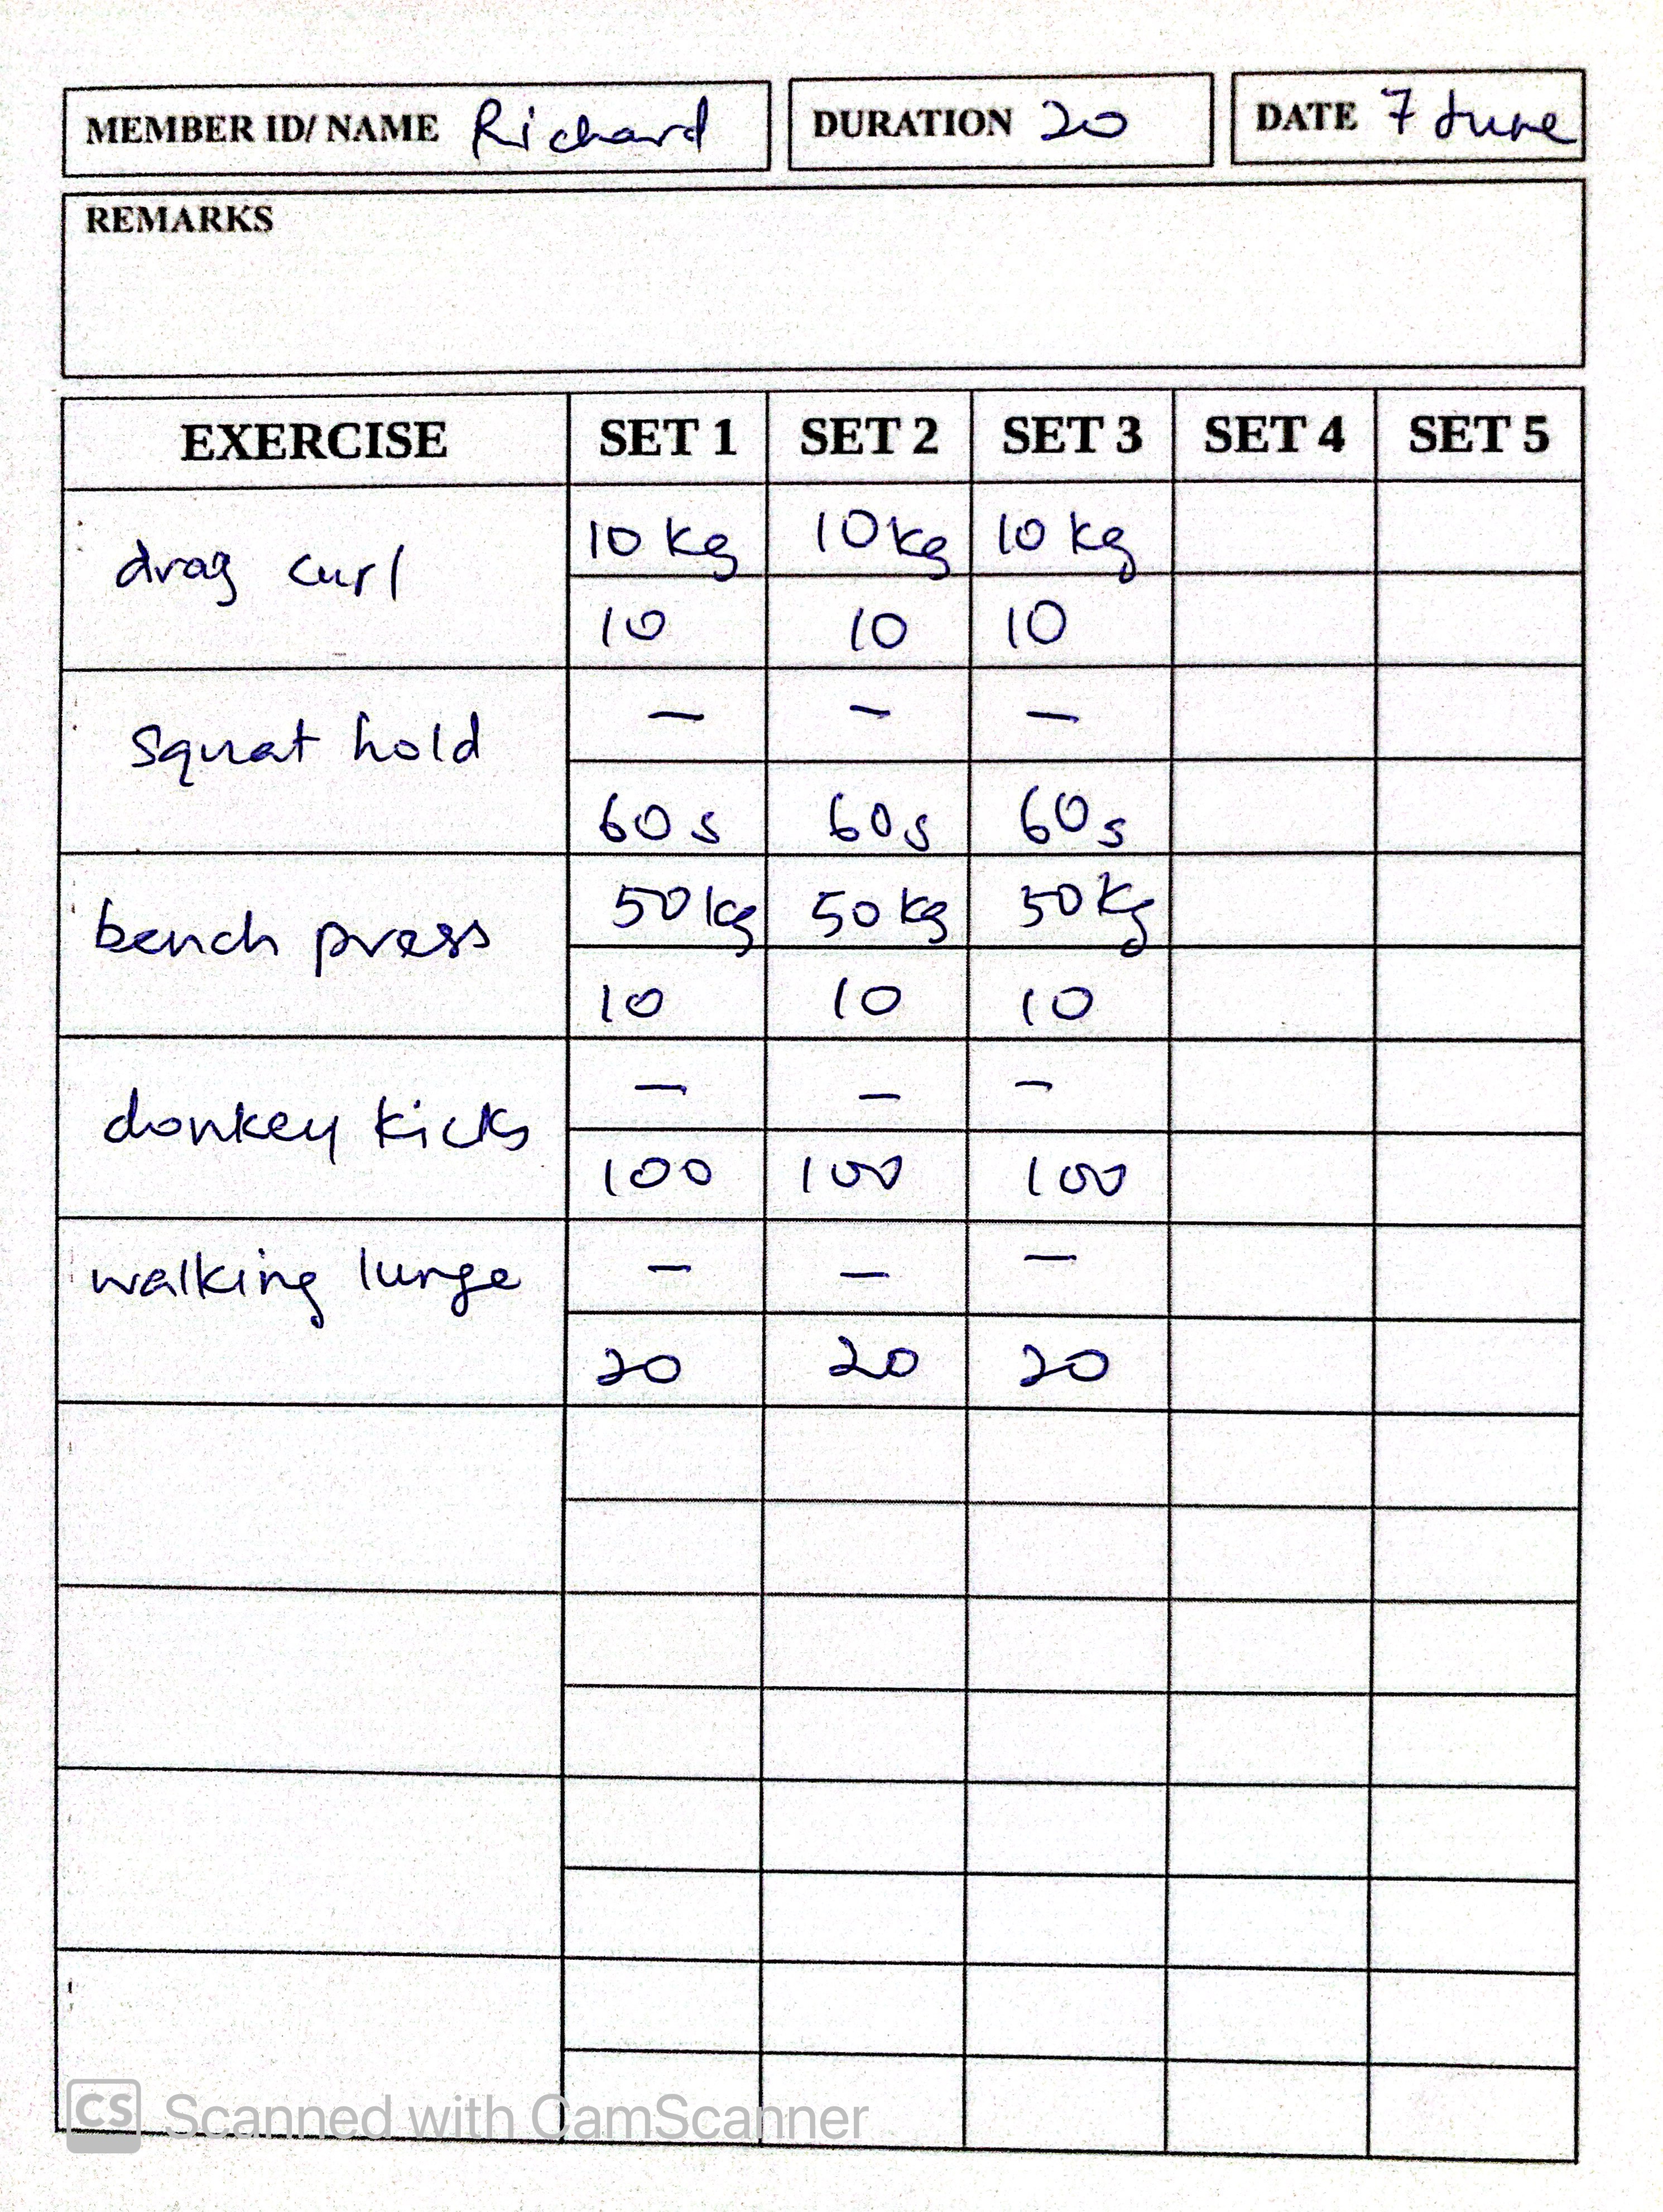 MEMBER ID/ NAME Richard DURATION 20 DATE 7 June
REMARKS
EXERCISE SET 1 SET 2 SET 3 SET 4 SET 5
drag curl 10 kg 10 kg 10 kg
10 10 10
squat hold — — —
60 s 60 s 60 s
bench press 50 kg 50 kg 50 kg
10 10 10
donkey kicks — — —
100 100 100
walking lunge — — —
20 20 20
CS Scanned with CamScanner